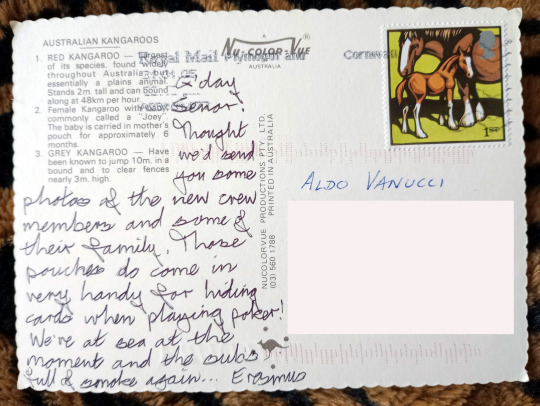 AUSTRALIAN KANGAROOS
1. RED KANGAROO — Largest
of its species, found widely
throughout Australia but
essentially a plains animal.
Stands 2m. tall and can bound
along at 48km per hour.
2. Female Kangaroo with
commonly called a "Joey".
The baby is carried in mother's
pouch for approximately 6
months.
3. GREY KANGAROO — Have
been known to jump 10m. in a
bound and to clear fences
nearly 3m. high.
A
NU-COLOR-VUE ®
AUSTRALIA
Royal Mail Plymouth and Cornwall
1ST
G'day
Senor!
Thought
we'd send
you some
photos of the new crew
members and some of
their family. Those
pouches do come in
very handy for hiding
cards when playing poker!
We're at sea at the
moment and the subs
full of smoke again... Erasmus
NUCOLORVUE PRODUCTIONS PTY. LTD.
(03) 560 1788 PRINTED IN AUSTRALIA
ALDO VANUCCI